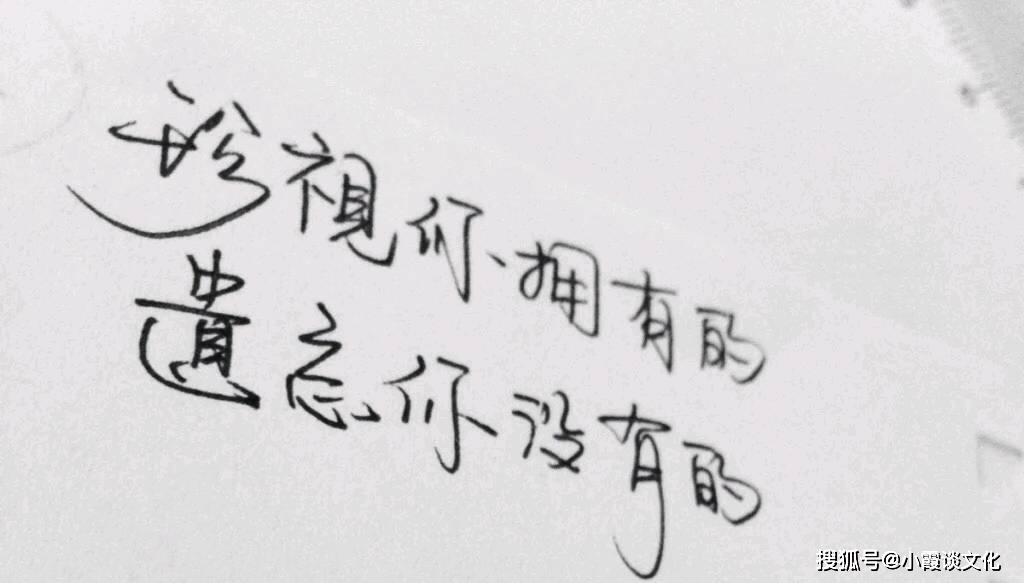 珍视你拥有的
遗忘你没有的
搜狐号@小霞谈文化